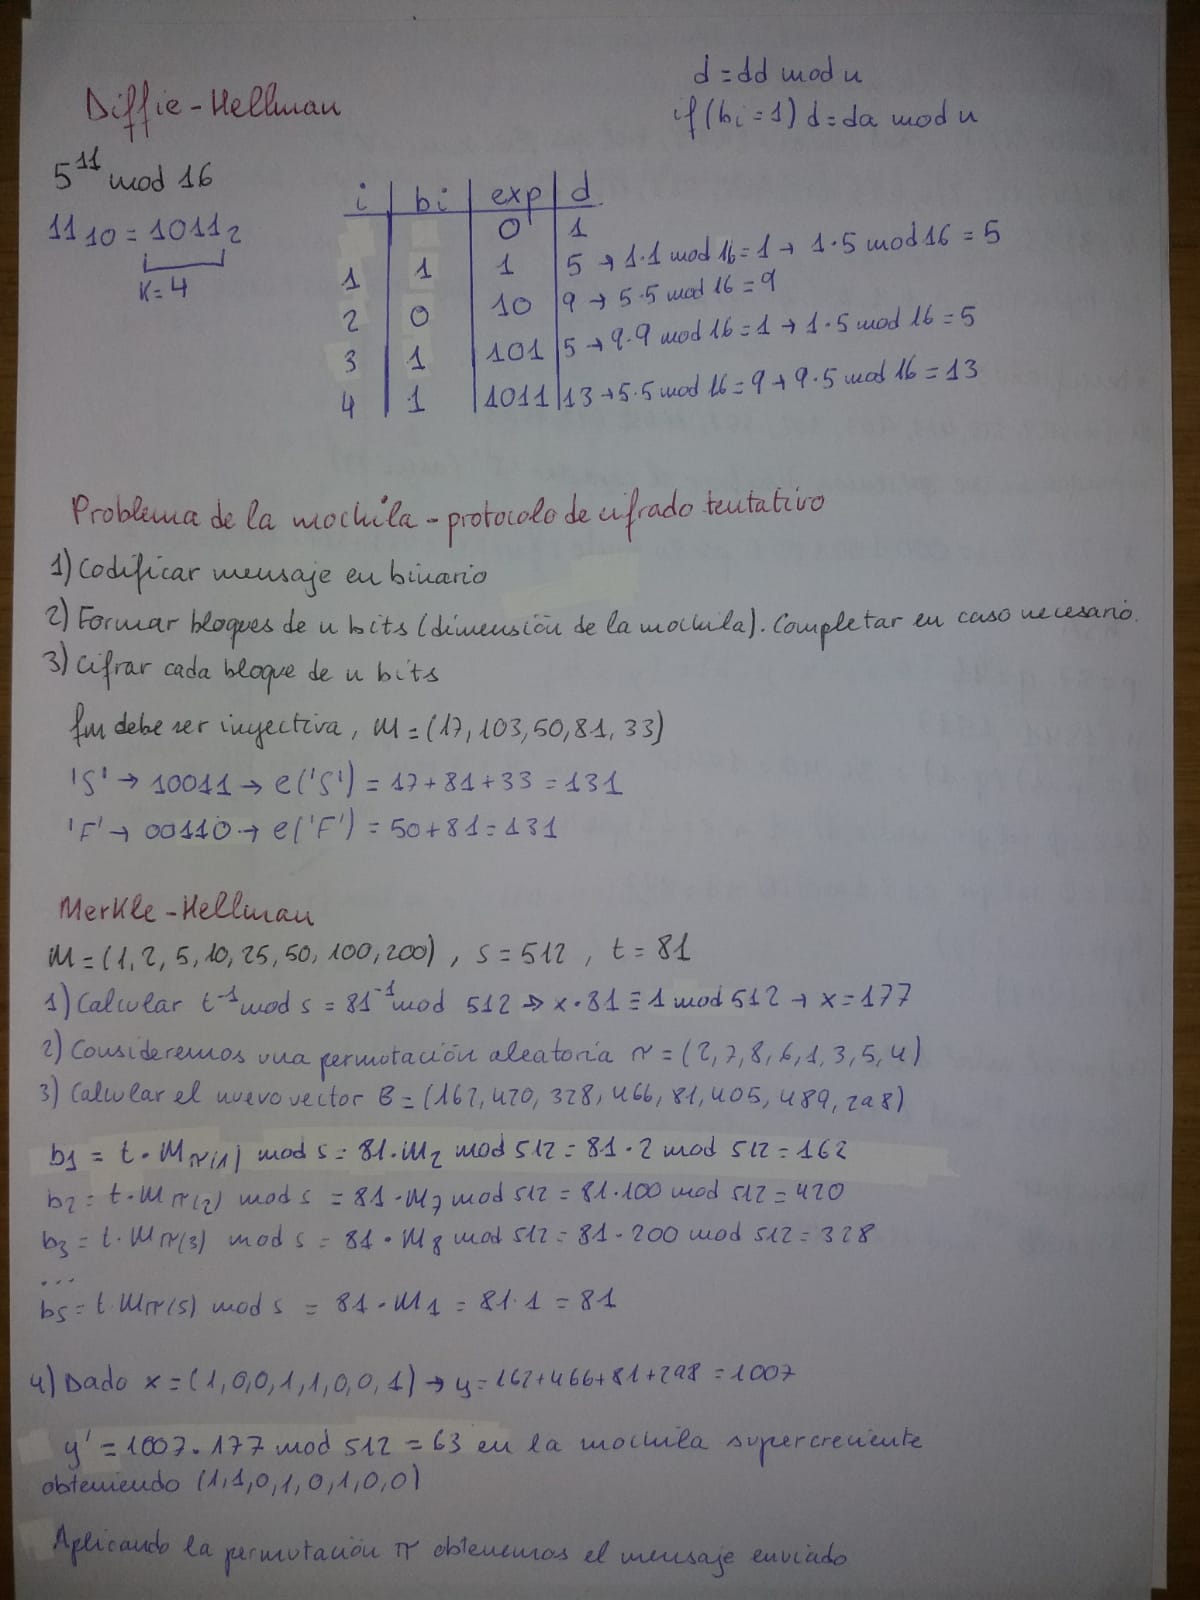 Diffie-Hellman
d = dd mod n
if (bi = 1) d = da mod n
5^11 mod 16
11₁₀ = 1011₂
K=4
i | bi | exp | d
0 | 1
1 | 1 | 1 | 5 → 1·1 mod 16 = 1 → 1·5 mod 16 = 5
2 | 0 | 10 | 9 → 5·5 mod 16 = 9
3 | 1 | 101 | 5 → 9·9 mod 16 = 1 → 1·5 mod 16 = 5
4 | 1 | 1011 | 13 → 5·5 mod 16 = 9 → 9·5 mod 16 = 13
Problema de la mochila - protocolo de cifrado tentativo
1) Codificar mensaje en binario
2) Formar bloques de n bits (dimensión de la mochila). Completar en caso necesario.
3) Cifrar cada bloque de n bits
fm debe ser inyectiva, M = (17, 103, 50, 81, 33)
'S' → 10011 → e('S') = 17 + 81 + 33 = 131
'F' → 00110 → e('F') = 50 + 81 = 131
Merkle-Hellman
M = (1, 2, 5, 10, 25, 50, 100, 200), s = 512, t = 81
1) Calcular t⁻¹ mod s = 81⁻¹ mod 512 → x·81 ≡ 1 mod 512 → x = 177
2) Consideremos una permutación aleatoria π = (2, 7, 8, 6, 1, 3, 5, 4)
3) Calcular el nuevo vector B = (162, 420, 328, 466, 81, 405, 489, 298)
b1 = t·Mπ(1) mod s = 81·M2 mod 512 = 81·2 mod 512 = 162
b2 = t·Mπ(2) mod s = 81·M7 mod 512 = 81·100 mod 512 = 420
b3 = t·Mπ(3) mod s = 81·M8 mod 512 = 81·200 mod 512 = 328
...
b5 = t·Mπ(5) mod s = 81·M1 = 81·1 = 81
4) Dado x = (1,0,0,1,1,0,0,1) → y = 162+466+81+298 = 1007
y' = 1007·177 mod 512 = 63 en la mochila supercreciente
obteniendo (1,1,0,1,0,1,0,0)
Aplicando la permutación π obtenemos el mensaje enviado